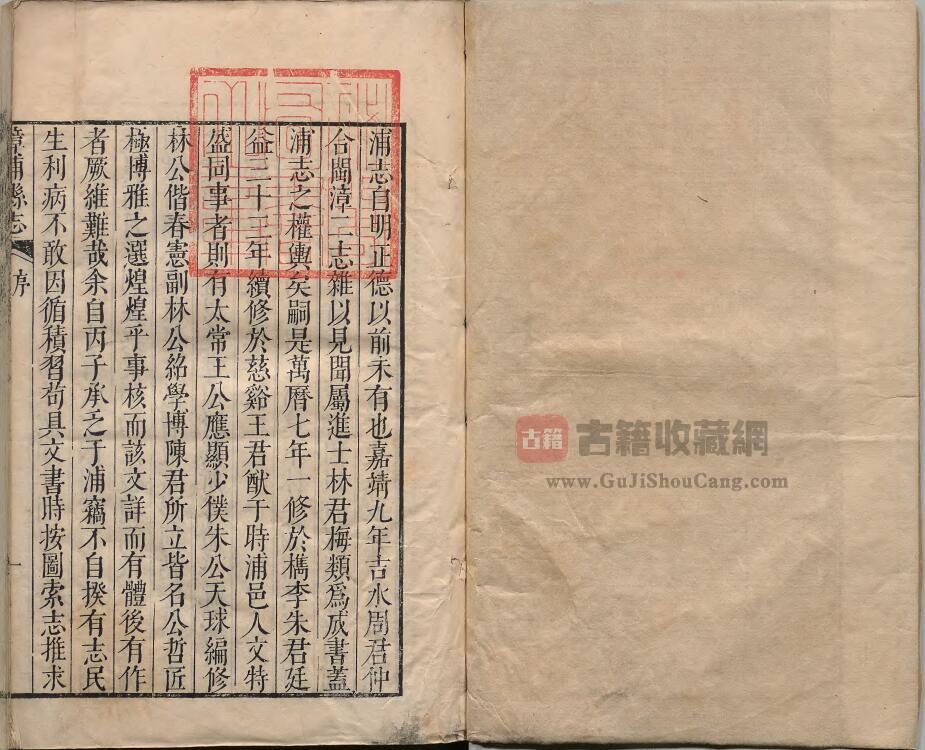 浦志自明正德以前未有也嘉靖九年吉水周君仲
合閩漳二志雜以見聞屬進士林君梅類爲成書蓋
浦志之權輿矣嗣是萬曆七年一修於檇李朱君廷
益三十二年續修於慈谿王君猷于時浦邑人文特
盛同事者則有太常王公應顯少僕朱公天球編修
林公偕春憲副林公𥿄學博陳君所立皆名公哲匠
極博雅之選煌煌乎事核而該文詳而有體後有作
者厥維難哉余自丙子承乏于浦竊不自揆有志民
生利病不敢因循積習苟具文書時按圖索志推求
漳浦縣志
序
一
古籍
古籍收藏網
www.GuJiShouCang.com